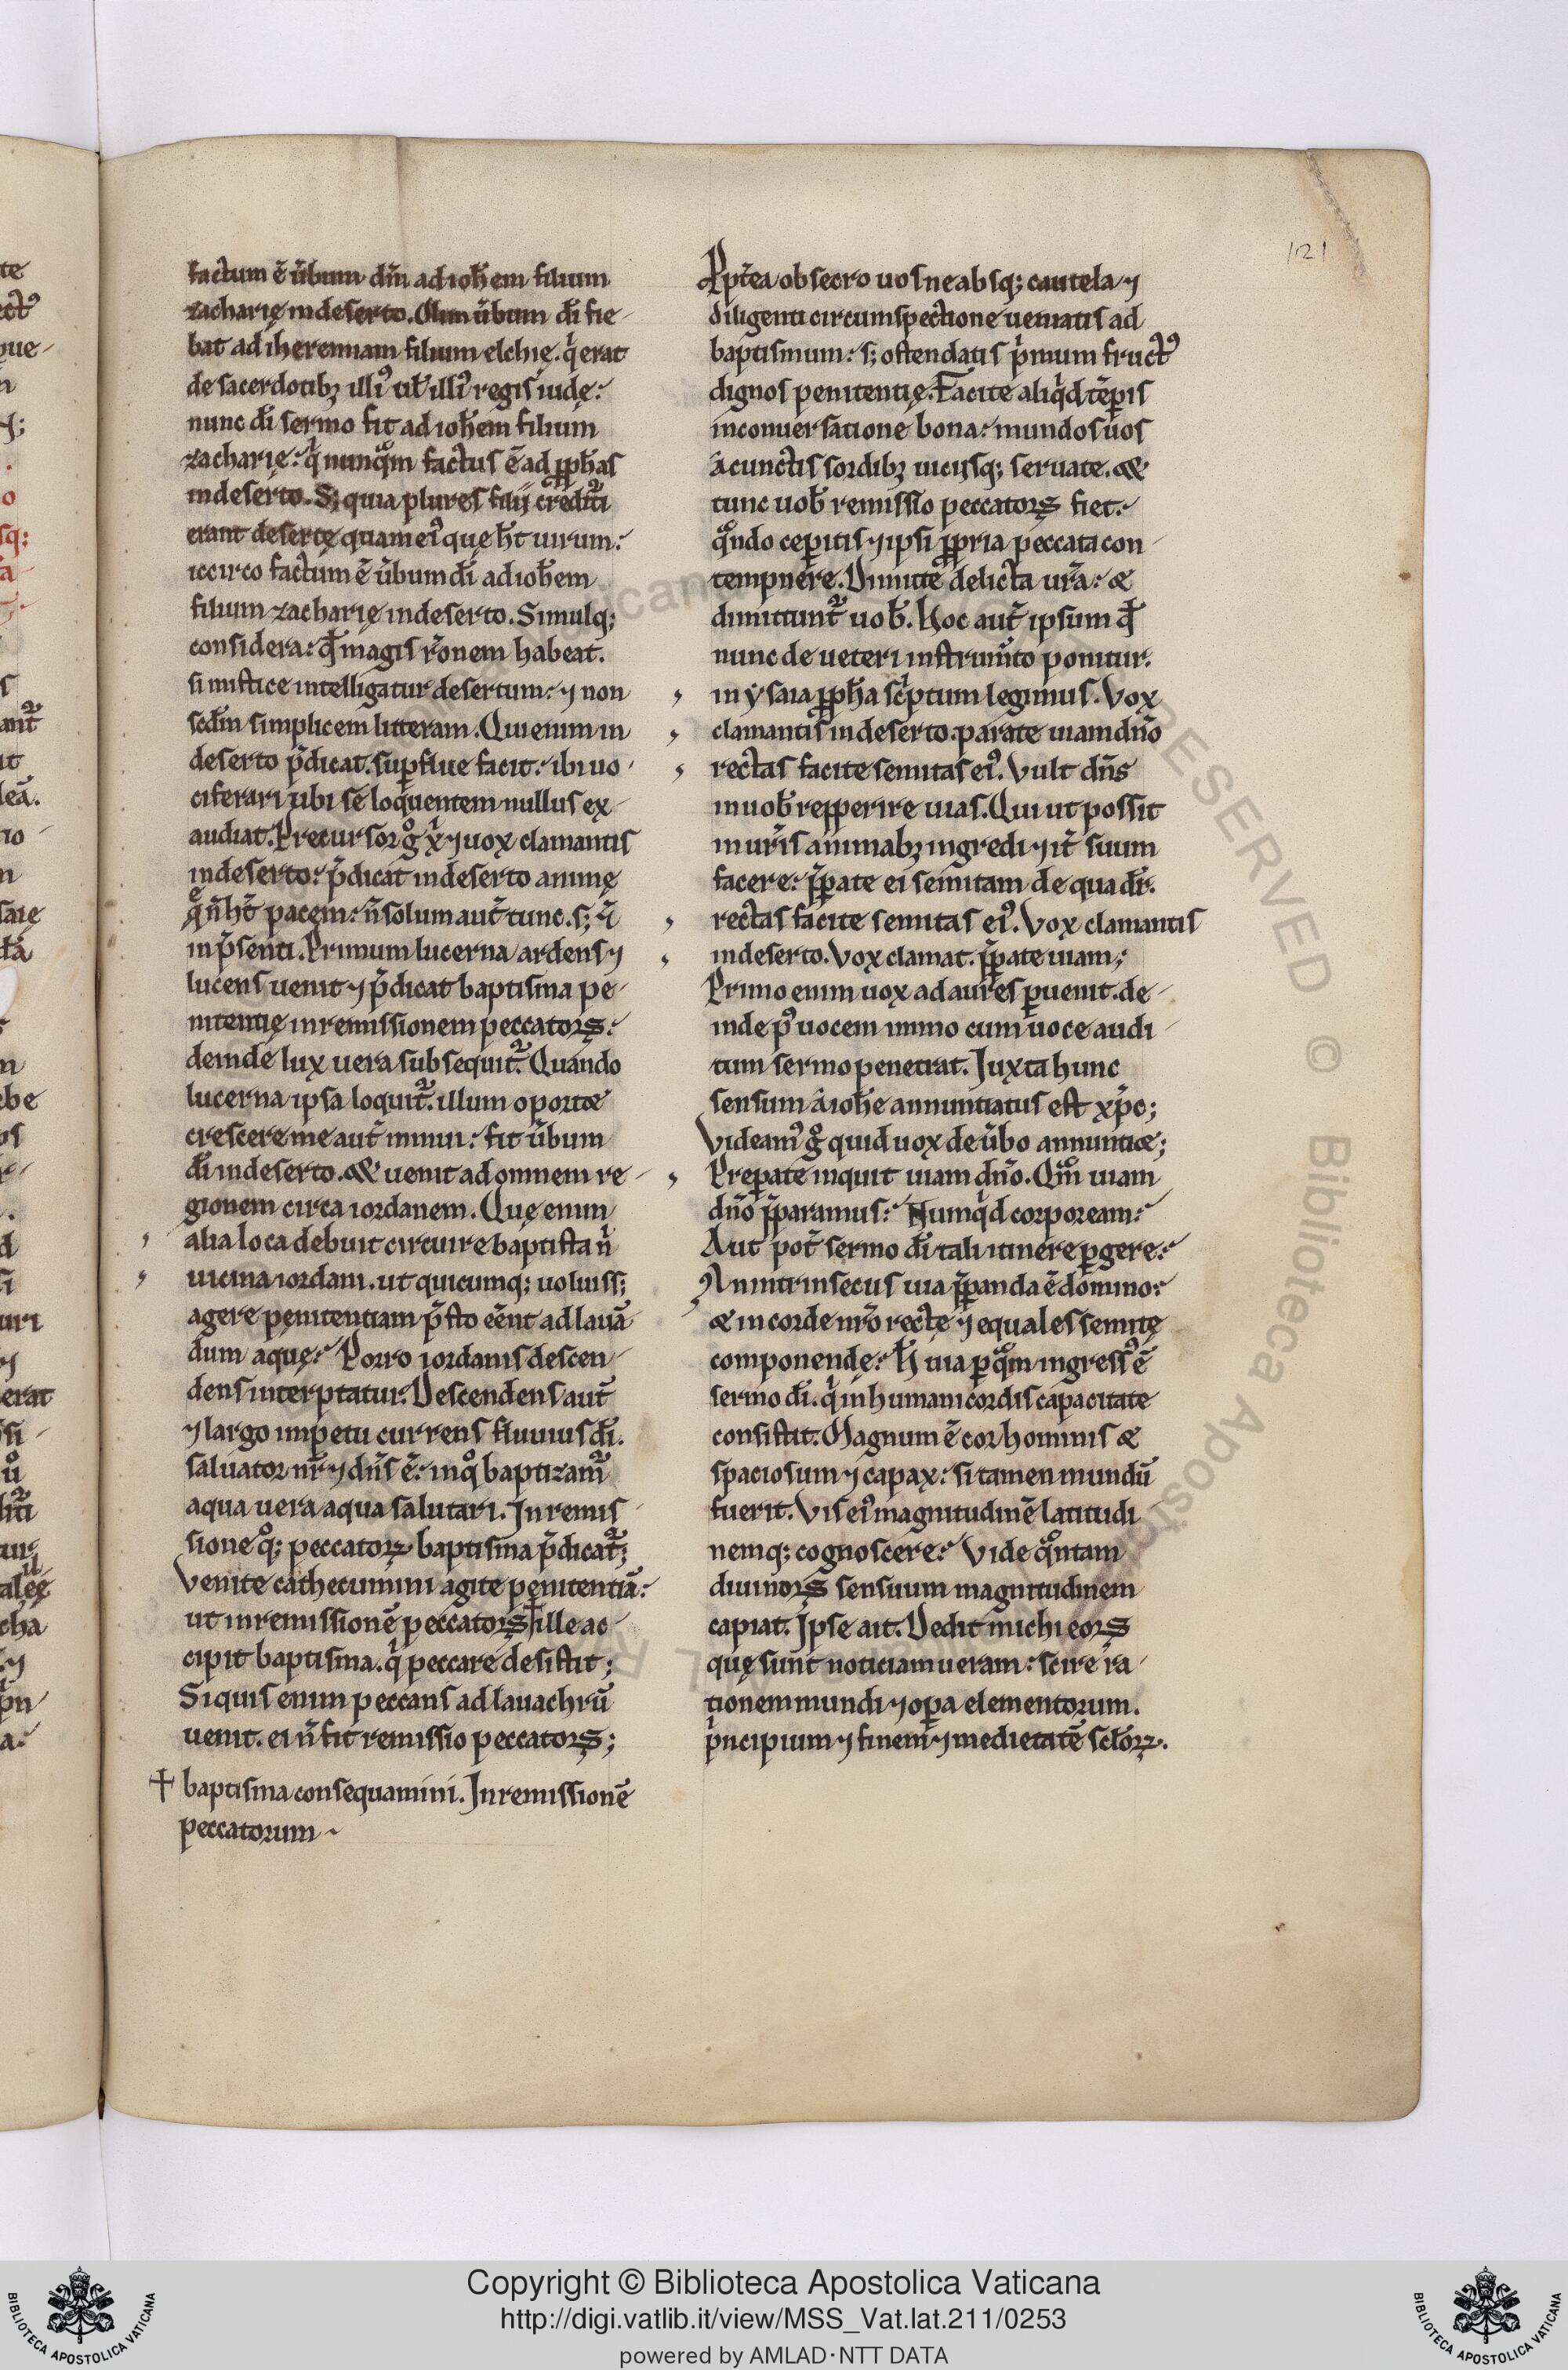 121
factum ē ũbum dñi ad ioħem filium
zacharię in deserto. Olim ũbum dī fie-
bat ad iheremiam filium elchię. qͥ erat
de sacerdotibꝫ illiꝰ tr̄ illiꝰ regis iudę:
nunc dī sermo fit ad ioħem filium
zacharię: qͥ nunqͦm factus ē ad ꝓph̄as
in deserto. S; quia plures filij credit᷑i
erant desertę quam eiꝰ quę h̄t uirum:
iccirco factum ē ũbum dī ad ioħem
filium zacharię in deserto. Simulq;
considera: qđ magis rōnem habeat.
si mistice intelligatur desertum: ⁊ non
scđm simplicem litteram. Qui enim in
deserto p̄dicat. suꝑflue facit: ibi uo-
ciferari ubi se loquentem nullus ex-
audiat. Precursor gͦ xp̄i ⁊ uox clamantis
in deserto: p̄dicat in deserto animę
quę ñ h̄t pacem: ñ solum aut̄ tunc. s; ⁊
in p̄senti. Primum lucerna ardens ⁊
lucens uenit ⁊ p̄dicat baptisma pe-
nitentię in remissionem peccatoꝝ:
deinde lux uera subsequit᷑. Quando
lucerna ipsa loquit᷑. illum oportet
crescere me aut̄ minui: fit ũbum
dī in deserto. & uenit ad omnem re-
gionem circa iordanem. Quę enim
alia loca debuit circuire baptista ñ
uicina iordani. ut quicumq; uoluiss;
agere penitentiam p̄sto eēnt ad lauā
dum aquę: Porro iordanis descen-
dens interp̄tatur. Descendens aut̄
⁊ largo impetu currens fluuius dī.
saluator nr̄ ⁊ dñs ē: in qͦ baptizam᷑
aqua uera aqua salutari. In remis-
sione qͦ; peccatoꝝ baptisma p̄dicat᷑;
Venite cathecumini agite penitentiā:
ut in remissionē peccatoꝝ † ille ac-
cipit baptisma. qͥ peccare desistit;
Siquis enim peccans ad lauachrū
uenit. ei ñ fit remissio peccatoꝝ;
† baptisma consequamini. In remissionē
peccatorum
Ppt̄ea obsecro uos ne absq; cautela ⁊
diligenti circumspectione ueniatis ad
baptismum: s; ostendatis pͥmum fructꝰ
dignos penitentię. Facite aliqͥd tēꝑis
in conuersatione bona: mundos uos
a cunctis sordibꝫ uicijsq; seruate. &
tunc uob̄ remissio peccatoꝝ fiet:
qͦndo ceperitis ⁊ ipsi ꝓpria peccata con-
tempnere. Dimittē delicta ur̄a: &
dimittunt᷑ uob̄. Hoc aut̄ ipsum qđ
nunc de ueteri instrum̄to ponitur.
in ysaia ꝓph̄a scͥptum legimus. Vox
clamantis in deserto. parate uiam dño
rectas facite semitas eiꝰ. Vult dñs
in uob̄ repperire uias. Qui ut possit
in ur̄is animabꝫ ingredi ⁊ it̄ suum
facere: p̄ꝑate ei semitam de qua dr̄.
rectas facite semitas eiꝰ. Vox clamantis
in deserto. Vox clamat. p̄ꝑate uiam;
Primo enim uox ad aures ꝑuenit. de-
inde pꝰ uocem immo cum uoce audi-
tum sermo penetrat. Iuxta hunc
sensum a ioħe annuntiatus est xp̄c;
Videamꝰ gͦ quid uox de ũbo annuntiet;
Preꝑate inquit uiam dño. Qm̄ uiam
dño p̄paramus: Numqͥd corpoream:
Aut pot̄ sermo dī tali itinere ꝑgere:
An intrinsecus uia p̄ꝑanda ē domino:
& in corde nr̄o rectę ⁊ equales semitę
componendę: H̄ uia ꝑ qͦm ingressꝰ ē
sermo dī. qͥ in humani cordis capacitate
consistit. Magnum ē cor hominis &
spaciosum ⁊ capax: si tamen mundū
fuerit. Vis eiꝰ magnitudinē latitudi-
nemq; cognoscere: Vide qͦntam
diuinoꝝ sensuum magnitudinem
capiat. Ipse ait. Dedit michi eoꝝ
quę sunt noticiam ueram: scire ra-
tionem mundi ⁊ opa elementorum.
pͥncipium ⁊ finem ⁊ medietatē sclōꝝ.
Copyright © Biblioteca Apostolica Vaticana
http://digi.vatlib.it/view/MSS_Vat.lat.211/0253
powered by AMLAD·NTT DATA